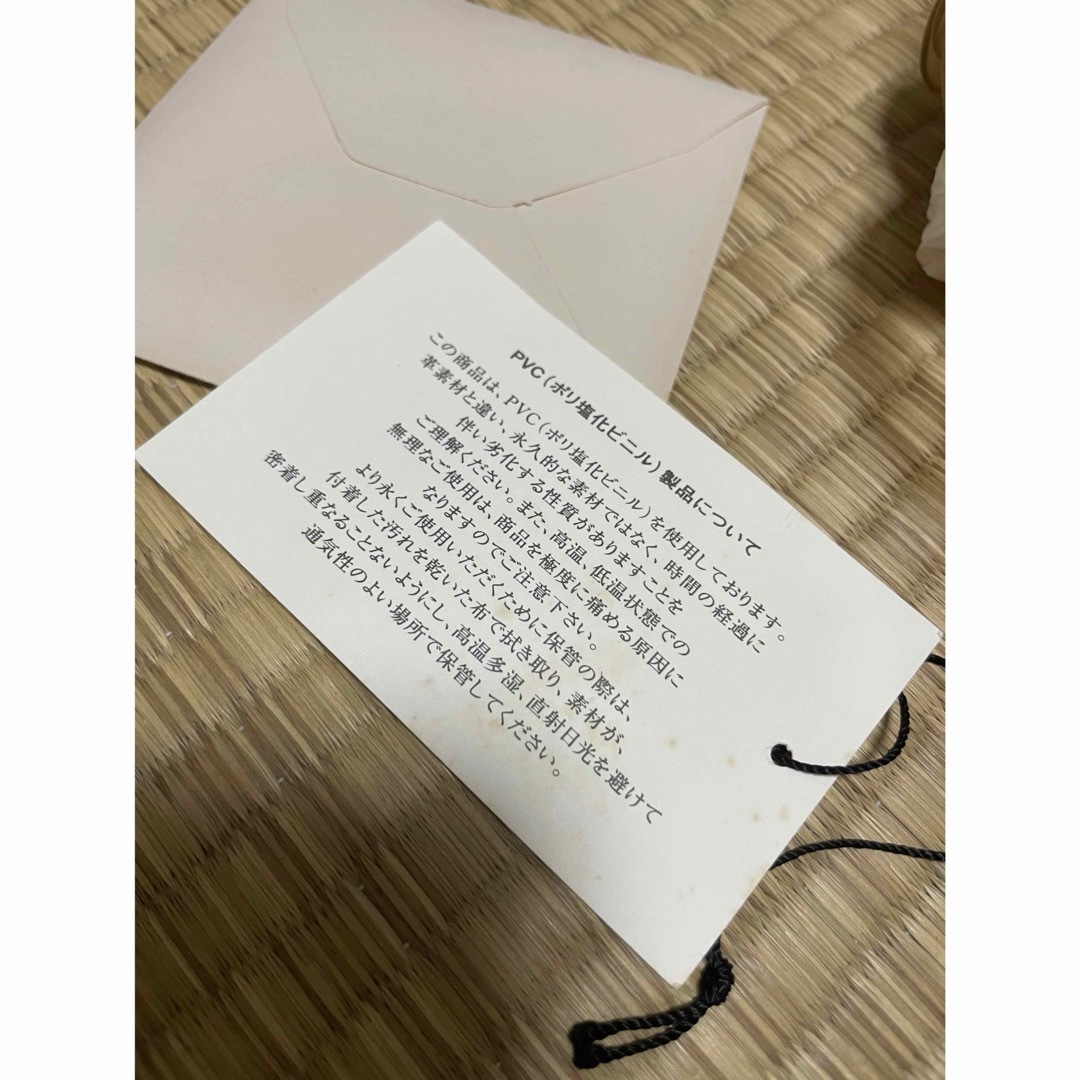 PVC(ポリ塩化ビニル)製品について
この商品は、PVC(ポリ塩化ビニル)を使用しております。
革素材と違い、永久的な素材ではなく、時間の経過に
伴い劣化する性質がありますことを
ご理解ください。また、高温、低温状態での
無理なご使用は、商品を極度に痛める原因に
なりますのでご注意下さい。
より永くご使用いただくために保管の際は、
付着した汚れを乾いた布で拭き取り、素材が、
密着し重なることないようにし、高温多湿、直射日光を避けて
通気性のよい場所で保管してください。